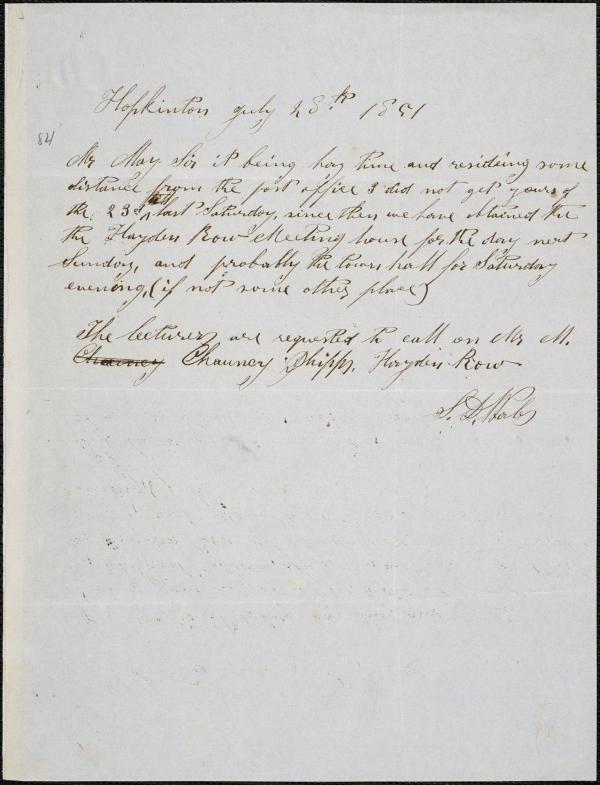 Hopkinton July 28th 1851
821
Mr May Sir it being hay time and resideing some
distance from the post office I did not get yours of
the 23d till last Saturday, since then we have obtained the
the Hayden Row Meeting house for the day next
Sunday, and probably the town hall for Saturday
evening, (if not some other place)
The lecturers are requested to call on Mr M.
Chauncy Chauncy Phipps, Hayden Row
S. D.